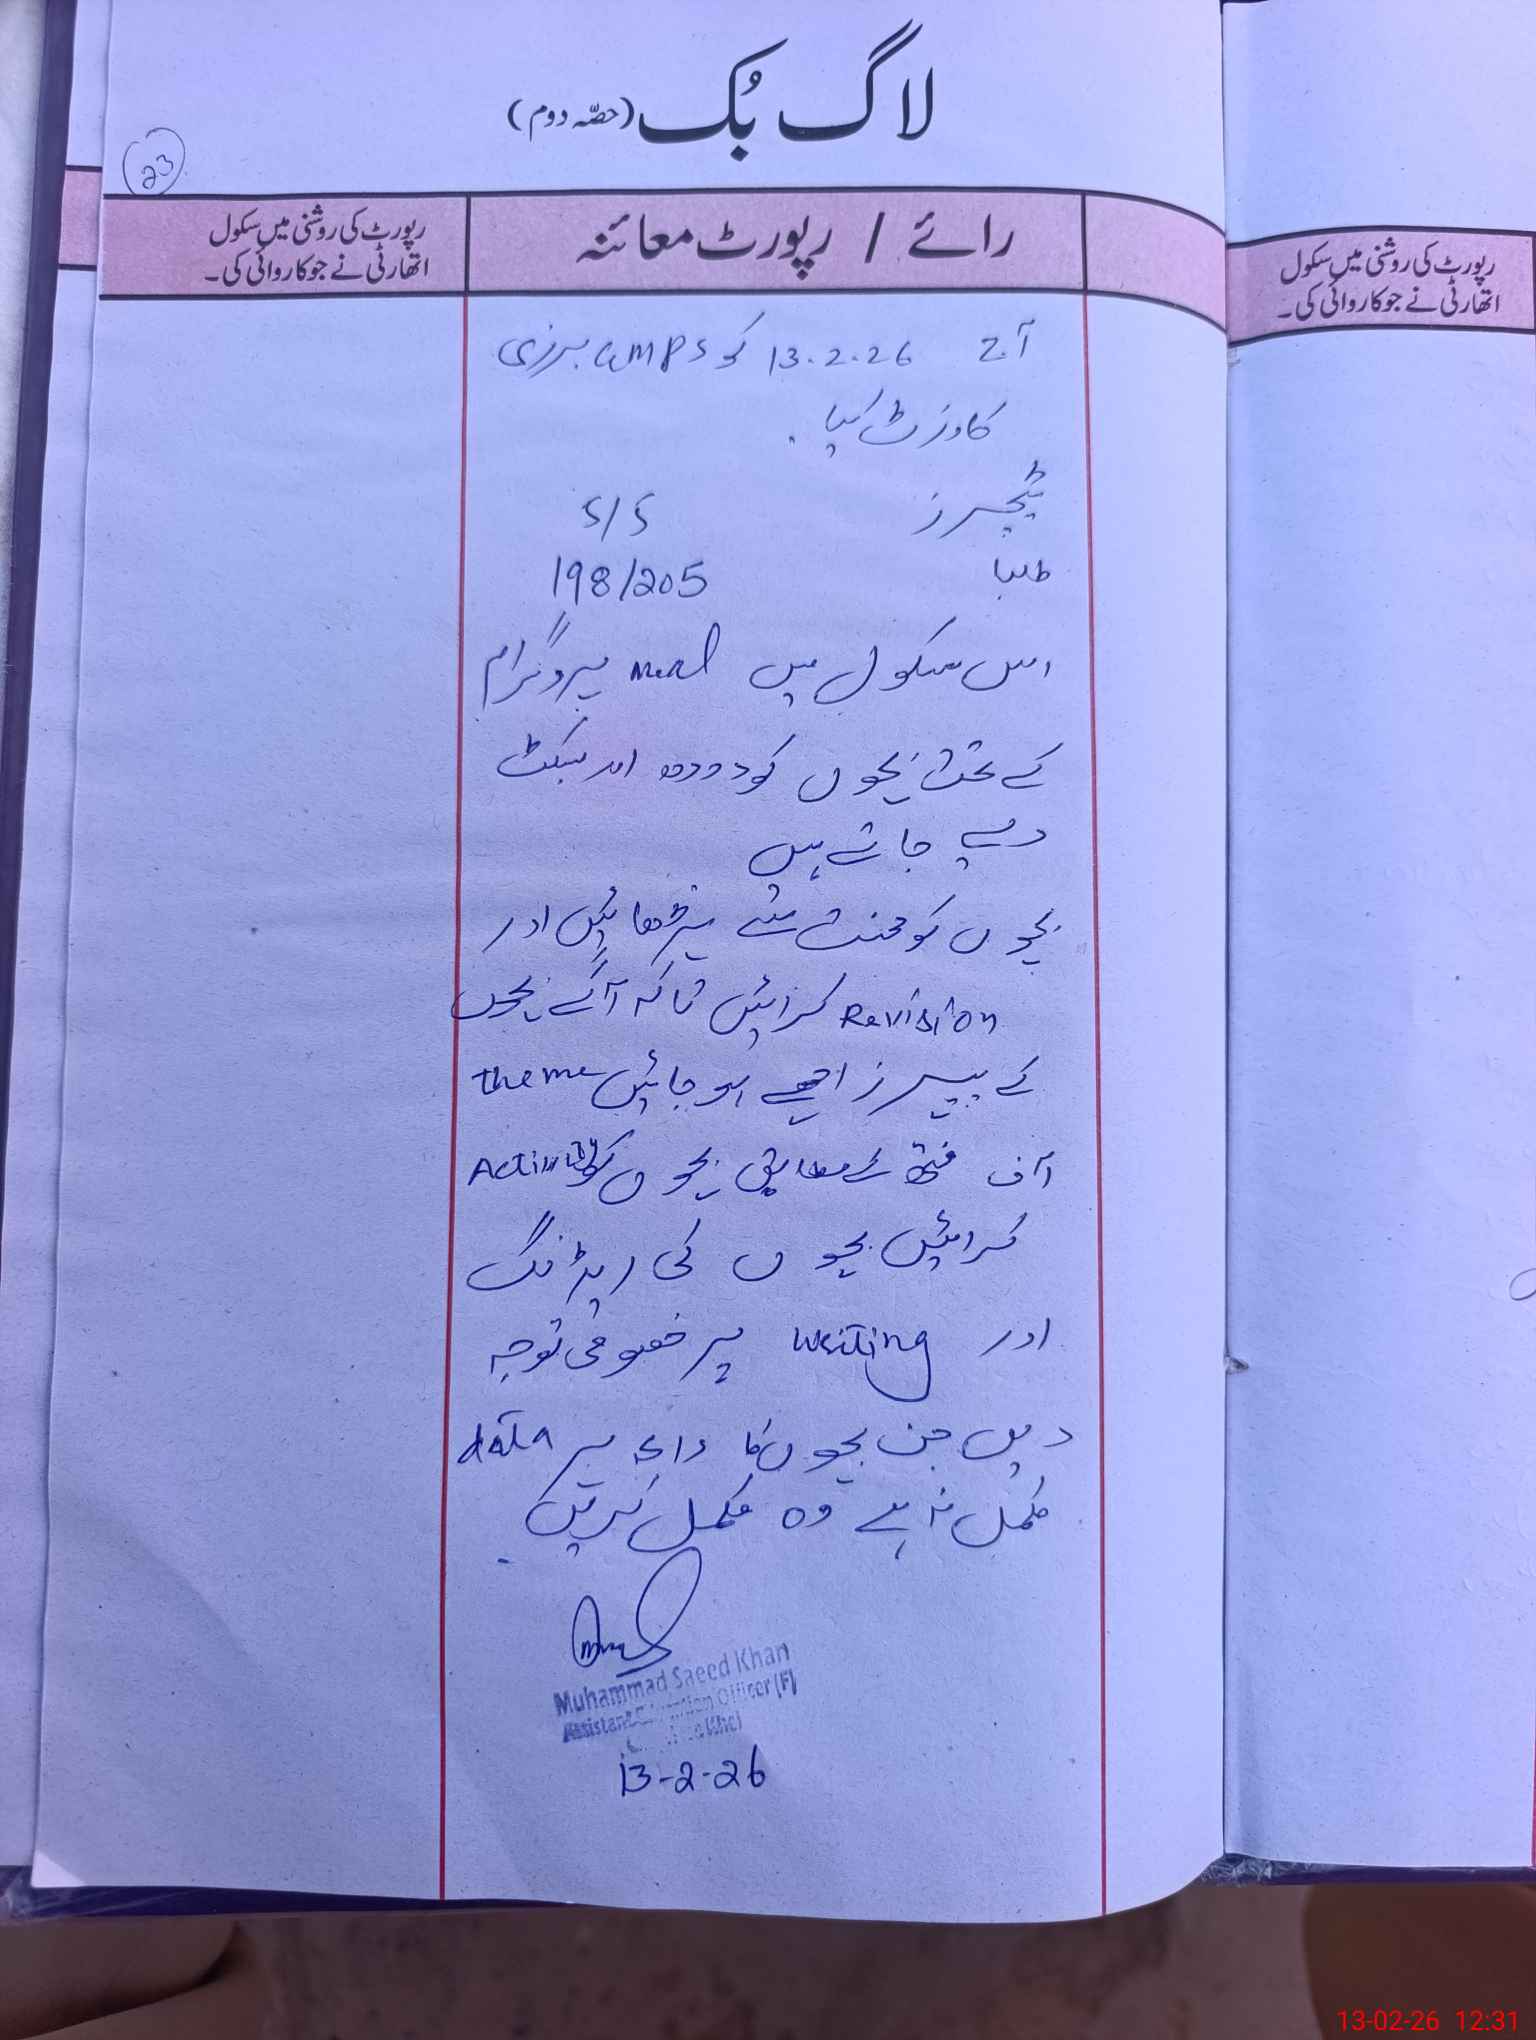 لاگ بُک (حصّہ دوم)
23
رائے / رپورٹ معائنہ
رپورٹ کی روشنی میں سکول
اتھارٹی نے جو کاروائی کی۔
رپورٹ کی روشنی میں سکول
اتھارٹی نے جو کاروائی کی۔
آج 13.2.26 کو GMPS
کا وزٹ کیا.
ٹیچرز 5/5
طلبا 198/205
اس سکول میں meal پروگرام
کے تحت بچوں کو دودھ اور بسکٹ
دیے جاتے ہیں
بچوں کو محنت سے پڑھائیں اور
Revision کرائیں تاکہ آگے بچوں
کے پیپرز اچھے ہو جائیں theme
آف منتھ کے مطابق بچوں کو Activity
کرائیں بچوں کی ریڈنگ
اور writing پر خصوصی توجہ
دیں جن بچوں کا data
مکمل نہ ہے وہ مکمل کریں.
Muhammad Saeed Khan
Assistant Education Officer (F)
13-2-26
13-02-26 12:31